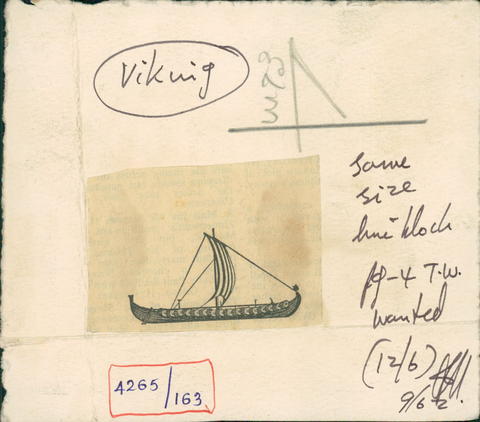 Viking
same
size
line block
pg-4 T.W.
wanted
(12/6)
9/6-2
4265/163